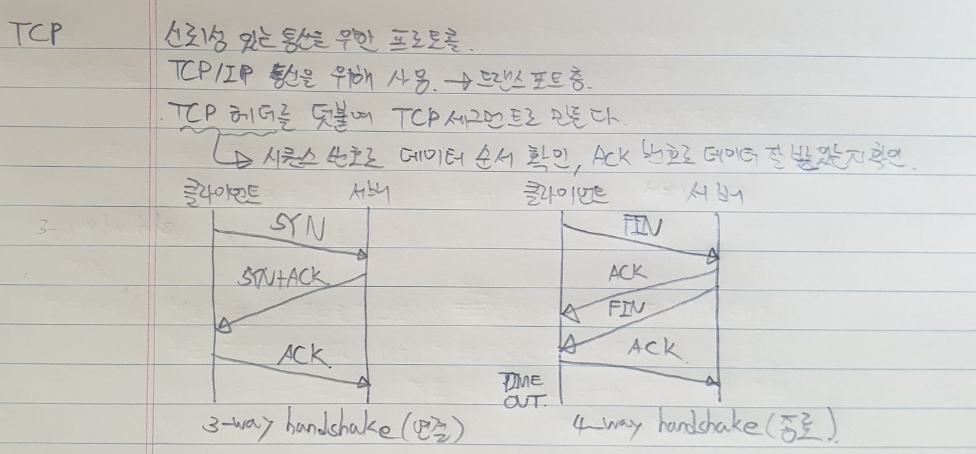 TCP
신뢰성 있는 통신을 위한 프로토콜.
TCP/IP 통신을 위해 사용. → 트랜스포트층.
TCP 헤더를 덧붙여 TCP 세그먼트로 만든다.
↳ 시퀀스 번호로 데이터 순서 확인, ACK 번호로 데이터 잘 받았는지 확인.
클라이언트 서버
SYN
SYN+ACK
ACK
3-way handshake (연결)
클라이언트 서버
FIN
ACK
FIN
ACK
TIME
OUT.
4-way handshake (종료)
3-